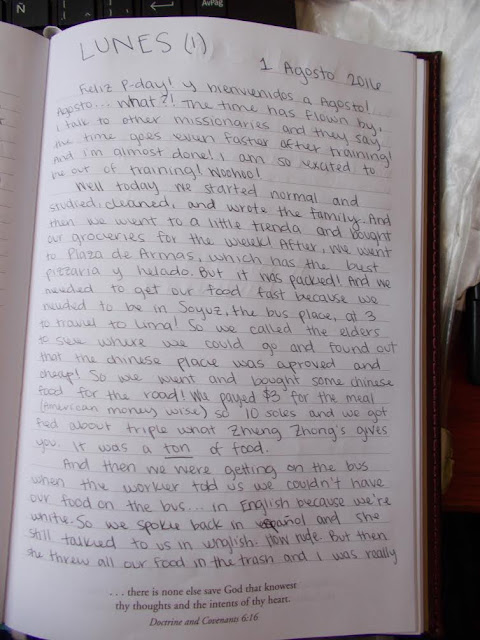 Ñ
AvPág
LUNES (1)
1 Agosto 2016
Feliz P-day! y bienvenidos a Agosto!
Agosto... what?! The time has flown by,
I talk to other missionaries and they say
the time goes even faster after training!
And I'm almost done! I am so excited to
be out of training! Woohoo!
Well today we started normal and
studied, cleaned, and wrote the family. And
then we went to a little tienda and bought
our groceries for the week! After, we went
to Plaza de Armas, which has the best
pizzaria y helado. But it was packed! And we
needed to get our food fast because we
needed to be in Soyuz, the bus place, at 3
to travel to Lima! So we called the elders
to see where we could go and found out
that the chinese place was aproved and
cheap! So we went and bought some chinese
food for the road! We payed $3 for the meal
(American money wise) so 10 soles and we got
fed about triple what Zheng Zhong's gives
you. It was a ton of food.
And then we were getting on the bus
when the worker told us we couldn't have
our food on the bus... in English because we're
white. So we spoke back in español and she
still talked to us in english. How rude. But then
she threw all our food in the trash and I was really
. . . there is none else save God that knowest
thy thoughts and the intents of thy heart.
Doctrine and Covenants 6:16